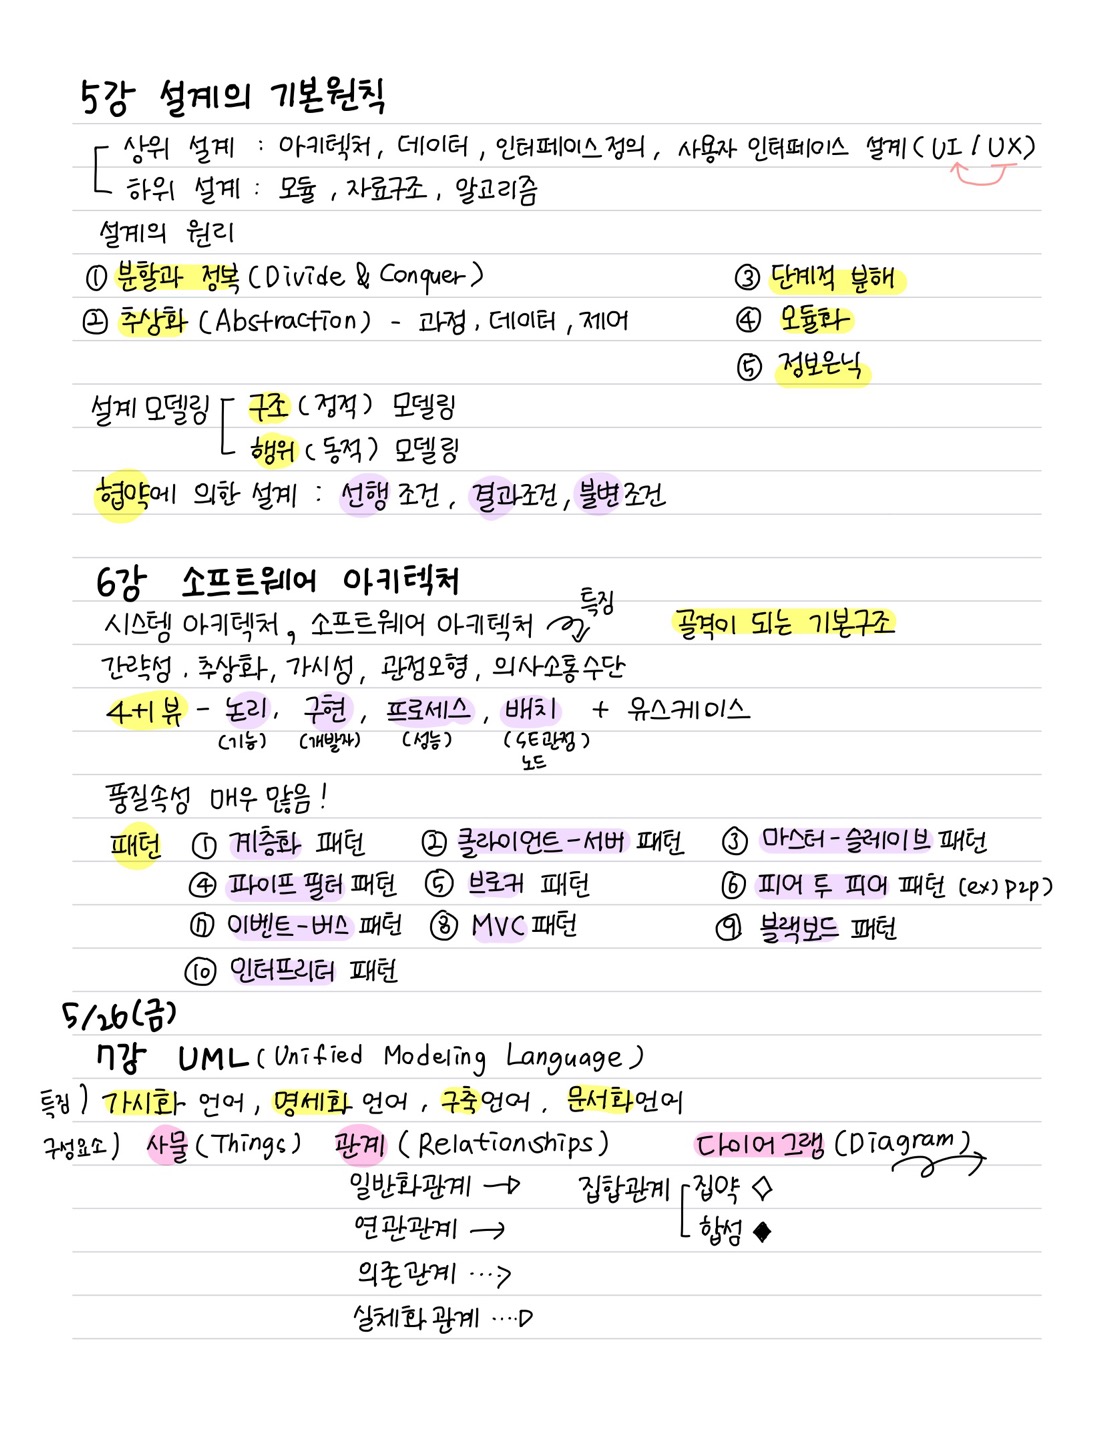 5강 설계의 기본원칙
상위 설계 : 아키텍처, 데이터, 인터페이스 정의, 사용자 인터페이스 설계(UI / UX)
하위 설계 : 모듈, 자료구조, 알고리즘
설계의 원리
① 분할과 정복(Divide & Conquer) ③ 단계적 분해
② 추상화 (Abstraction) - 과정, 데이터, 제어 ④ 모듈화
⑤ 정보은닉
설계 모델링 구조(정적) 모델링
행위(동적) 모델링
협약에 의한 설계 : 선행 조건, 결과조건, 불변조건
6강 소프트웨어 아키텍처
특징
시스템 아키텍처, 소프트웨어 아키텍처 골격이 되는 기본구조
간략성, 추상화, 가시성, 관점모형, 의사소통수단
4+1 뷰 - 논리, 구현, 프로세스, 배치 + 유스케이스
(기능) (개발자) (성능) (SE관점)
노드
품질속성 매우 많음!
패턴 ① 계층화 패턴 ② 클라이언트-서버 패턴 ③ 마스터-슬레이브 패턴
④ 파이프 필터 패턴 ⑤ 브로커 패턴 ⑥ 피어 투 피어 패턴 (ex) p2p)
⑦ 이벤트-버스 패턴 ⑧ MVC 패턴 ⑨ 블랙보드 패턴
⑩ 인터프리터 패턴
5/26(금)
7강 UML(Unified Modeling Language)
특징) 가시화 언어, 명세화 언어, 구축언어, 문서화언어
구성요소) 사물(Things) 관계(Relationships) 다이어그램(Diagram)
일반화관계 —▷ 집합관계 집약 ◇
연관관계 → 합성 ◆
의존관계 ····>
실체화 관계 ····▷